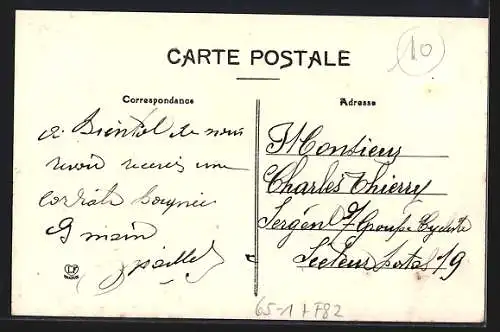 10
CARTE POSTALE
Correspondance
Adresse
a Bientot de nous
revoir recevez une
cordiale Poignée
de main
Monsieur
Charles Thierry
Sergent Groupe Cycliste
Secteur Postal 19
65-1 + F82